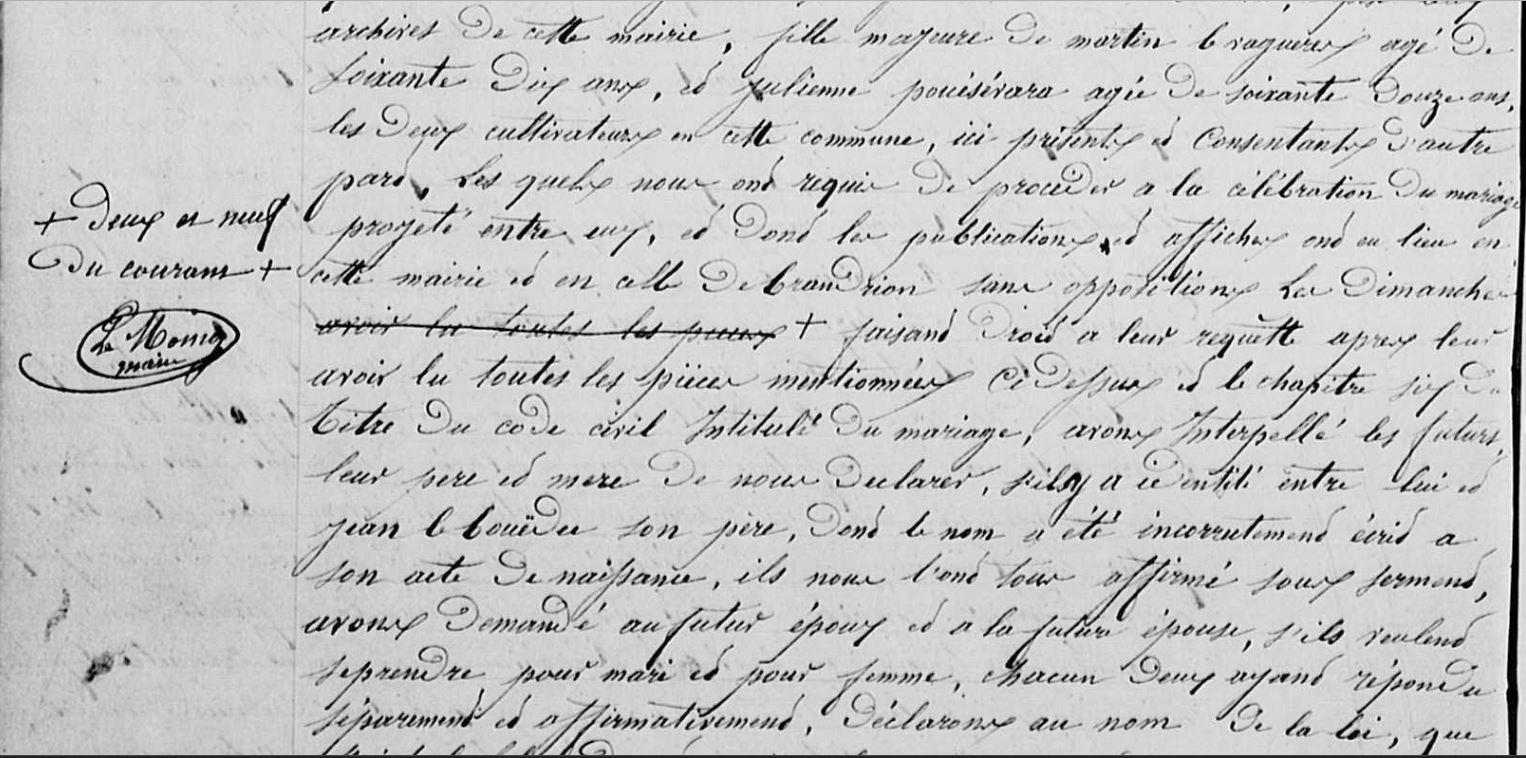 archives de cette mairie, fille majeure de martin le vaguerex agé de
soixante dix ans, et julienne pouésévara agée de soixante douze ans,
les deux cultivateurs en cette commune, ici présents et Consentants d'autre
part, Les quels nous ont requis de proceder a la célébration du mariage
+ deux et neuf
projeté entre eux, et dont les publications et affiches ont eu lieu en
du courant +
cette mairie et en celle de brandrion sans oppositions Les Dimanches
avoir lu toutes les pieces + faisant droit a leur requette apres leur
Le Moing
maire
avoir lu toutes les piéces mentionnées Ci dessus et le chapitre six du
titre du code civil Intitulé du mariage, avons Interpellé les futurs,
leur pere et mere de nous declarer, s'il y a identité entre lui et
jean le bouëdec son père, dont le nom a été incorrectement écrit a
son acte de naissance, ils nous l'ont tous affirmé sous serment,
avons demandé au futur époux et a la future épouse, s'ils veulent
se prendre pour mari et pour femme, chacun deux ayant répondu
séparement et affirmativement, déclarons au nom de la loi, que